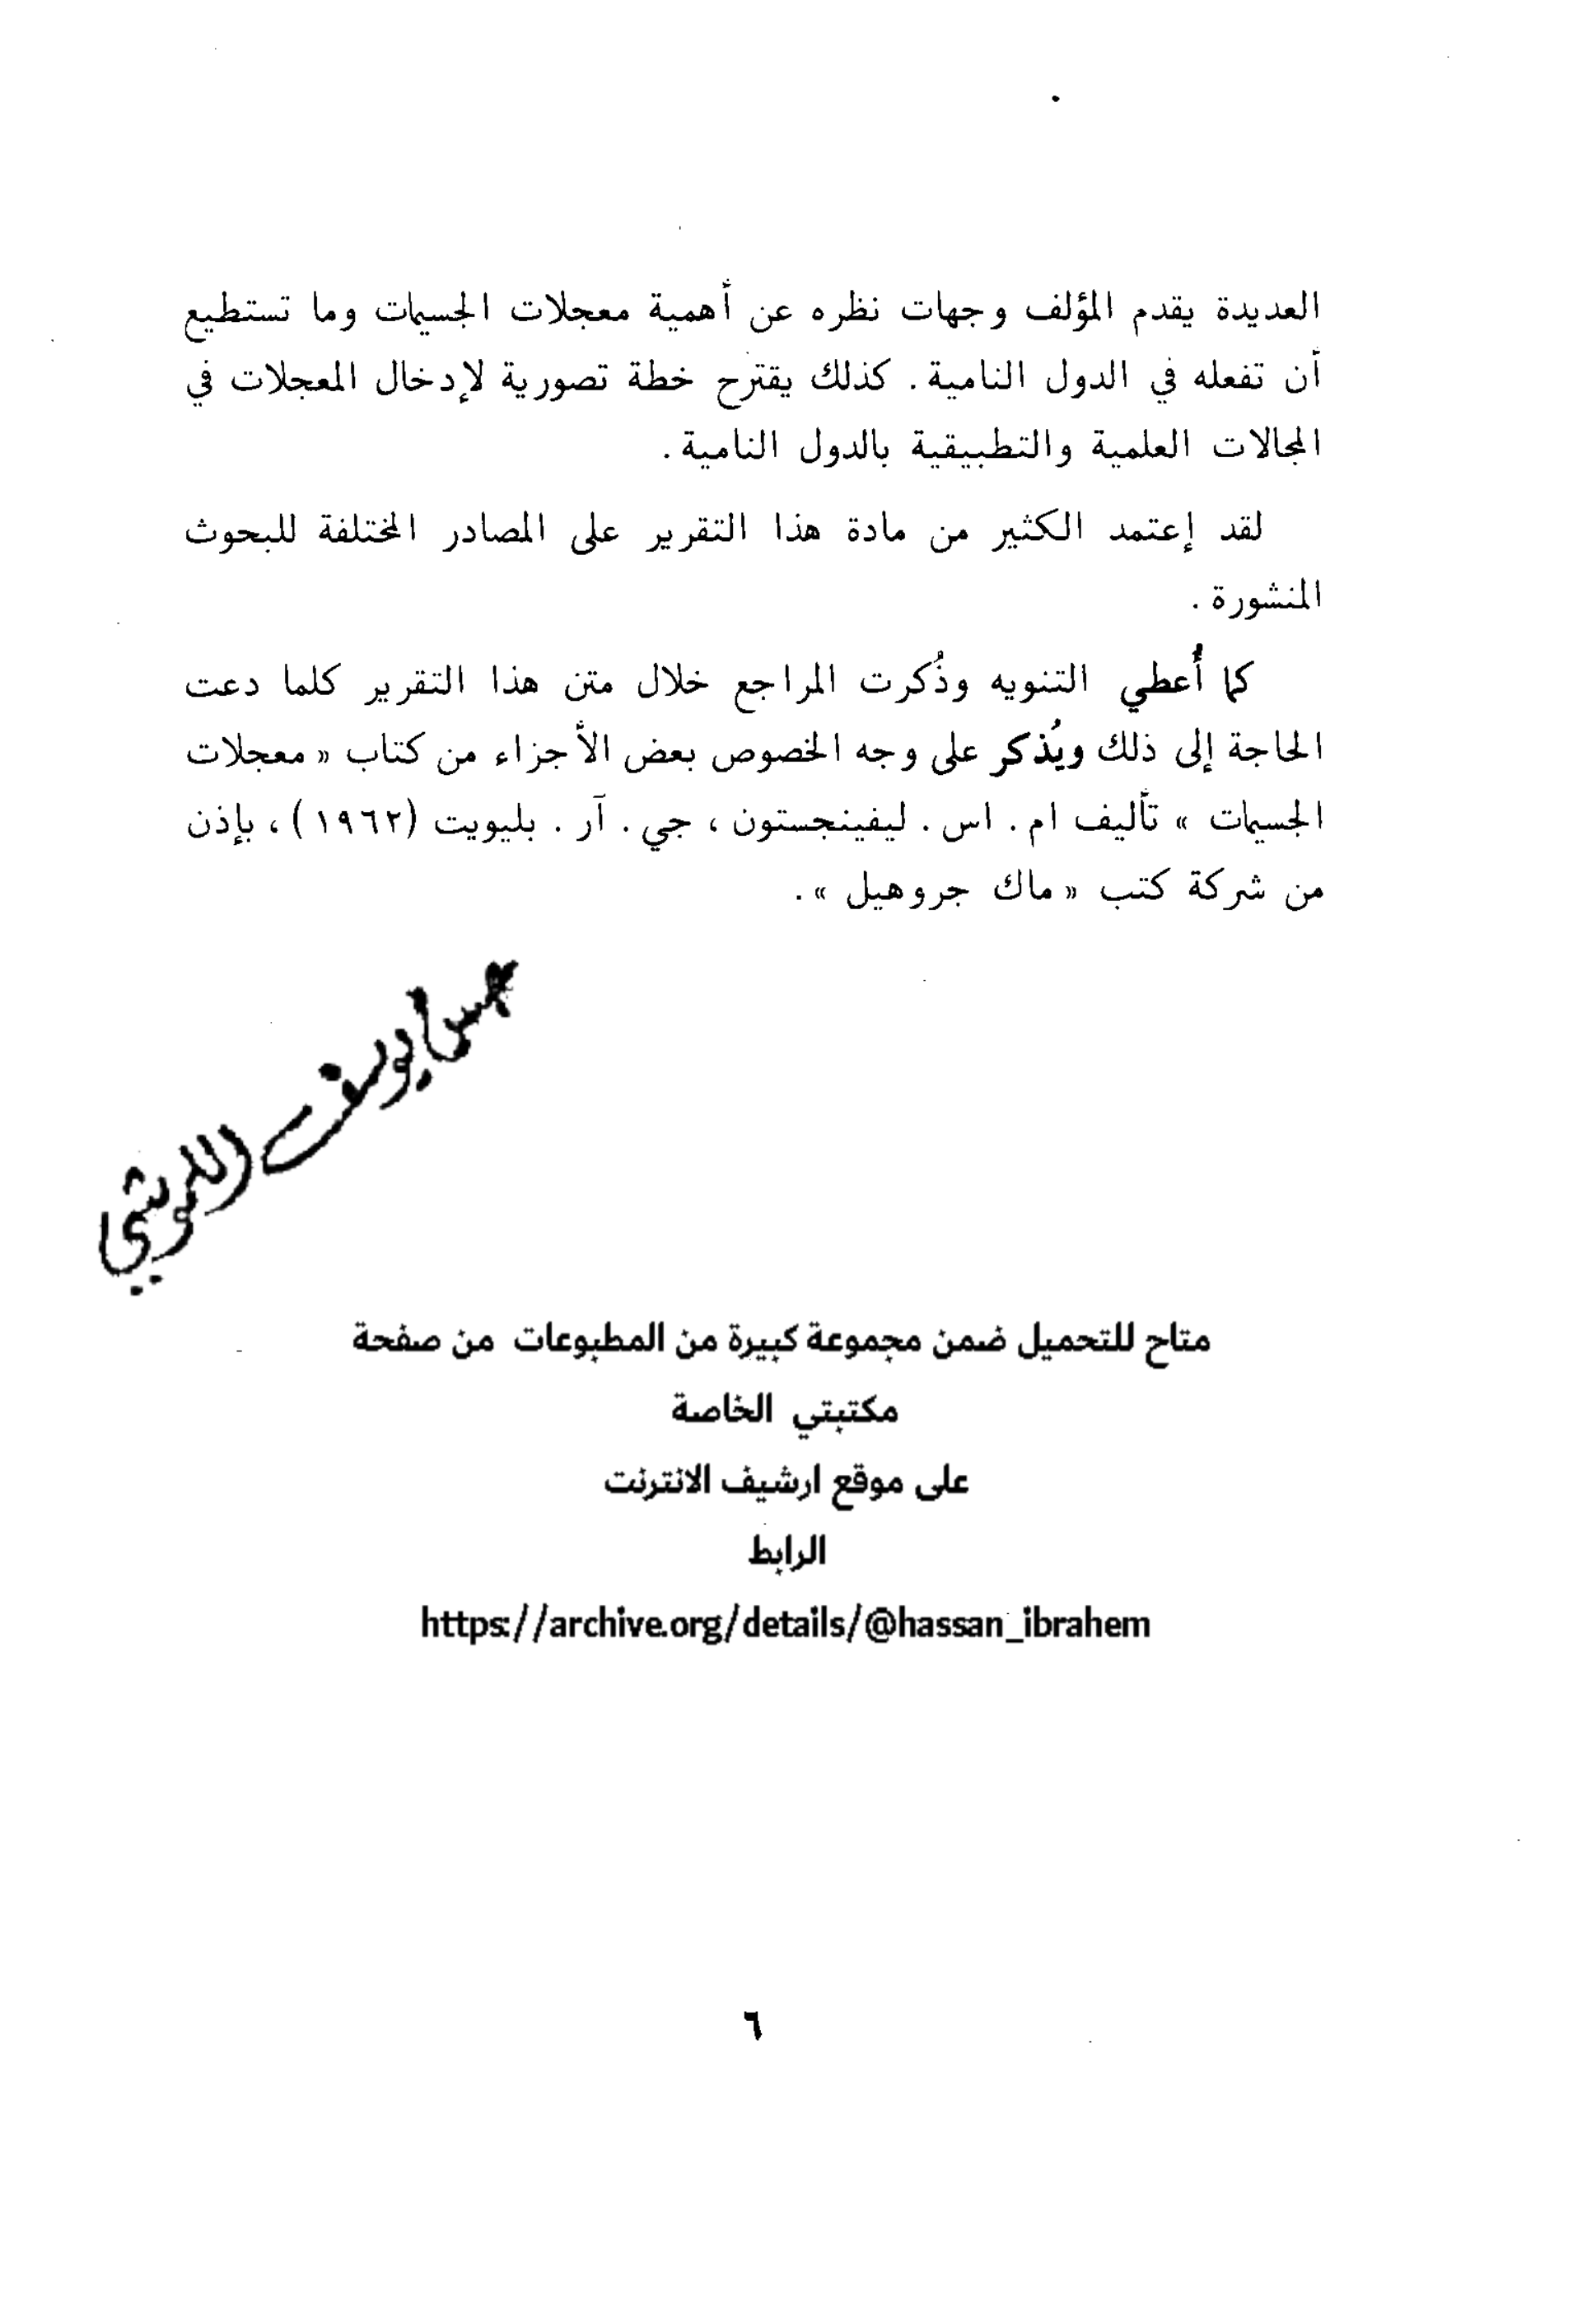 العديدة يقدم المؤلف وجهات نظره عن أهمية معجلات الجسيمات وما تستطيع
أن تفعله في الدول النامية . كذلك يقترح خطة تصورية لإدخال المعجلات في
المجالات العلمية والتطبيقية بالدول النامية .
لقد إعتمد الكثير من مادة هذا التقرير على المصادر المختلفة للبحوث
المنشورة .
كما أُعطي التنويه وذُكرت المراجع خلال متن هذا التقرير كلما دعت
الحاجة إلى ذلك ويُذكر على وجه الخصوص بعض الأجزاء من كتاب « معجلات
الجسيمات » تأليف ام . اس . ليفينجستون ، جي . آر . بليويت (١٩٦٢) ، بإذن
من شركة كتب « ماك جروهيل » .
يوسف
متاح للتحميل ضمن مجموعة كبيرة من المطبوعات من صفحة
مكتبتي الخاصة
على موقع ارشيف الانترنت
الرابط
https://archive.org/details/@hassan_ibrahem
٦